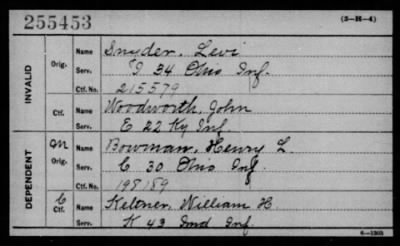 255453 (3-H-4)
INVALID Orig. Name Snyder, Levi
Serv. I 34 Ohio Inf.
Ctf. No. 215579
Ctf. Name Woodworth, John
Serv. E 22 Ky Inf.
DEPENDENT M Orig. Name Bowman, Henry L.
Serv. C 30 Ohio Inf
Ctf. No. 198189
C Ctf. Name Keltner, William H.
Serv. K 43 Ind Inf.
6-1303